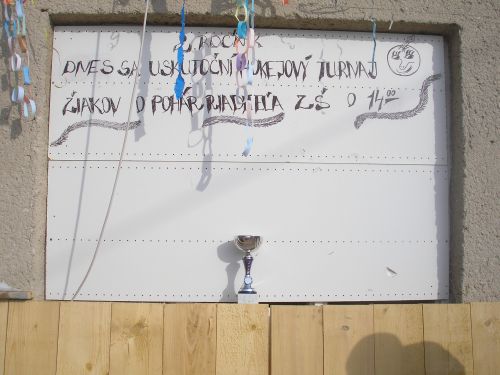 2. ROČNÍK
DNES SA USKUTOČNÍ HOKEJOVÝ TURNAJ
ŽIAKOV O POHÁR RIADITEĽA ZŠ O 14 00